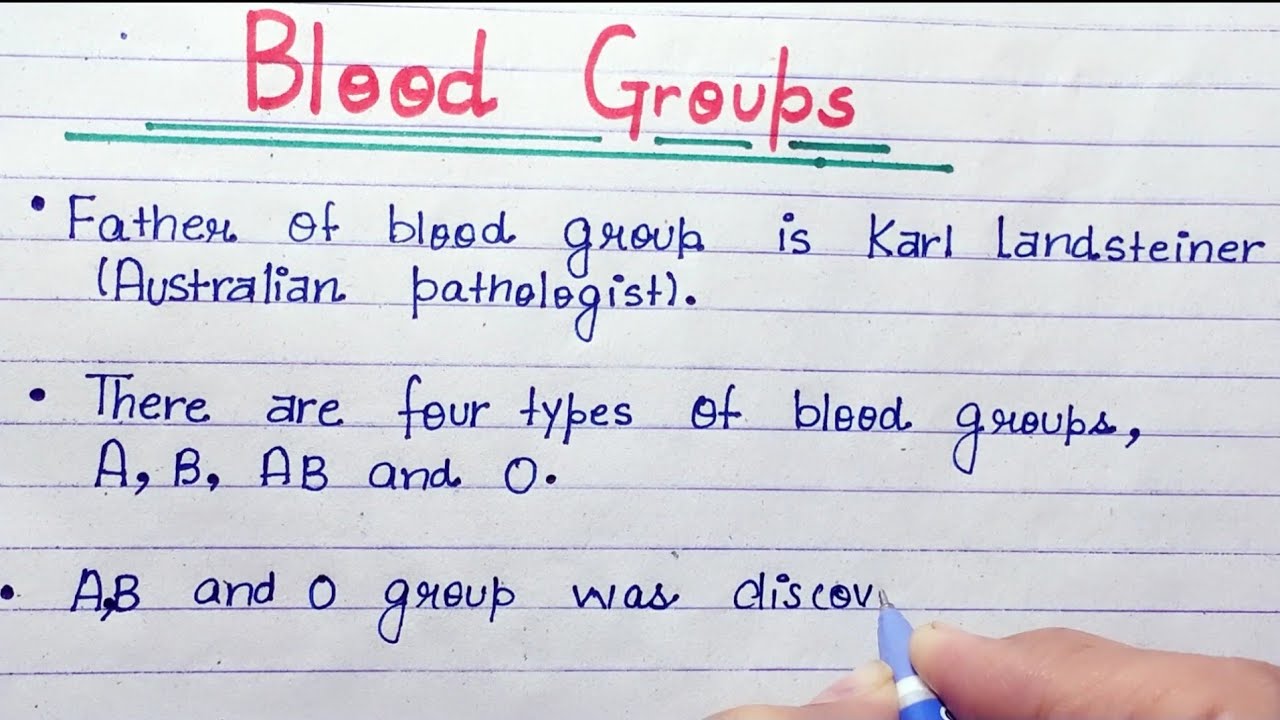 Blood Groups
• Father of blood group is Karl Landsteiner
(Australian pathologist).
• There are four types of blood groups,
A, B, AB and O.
• A,B and O group was discov